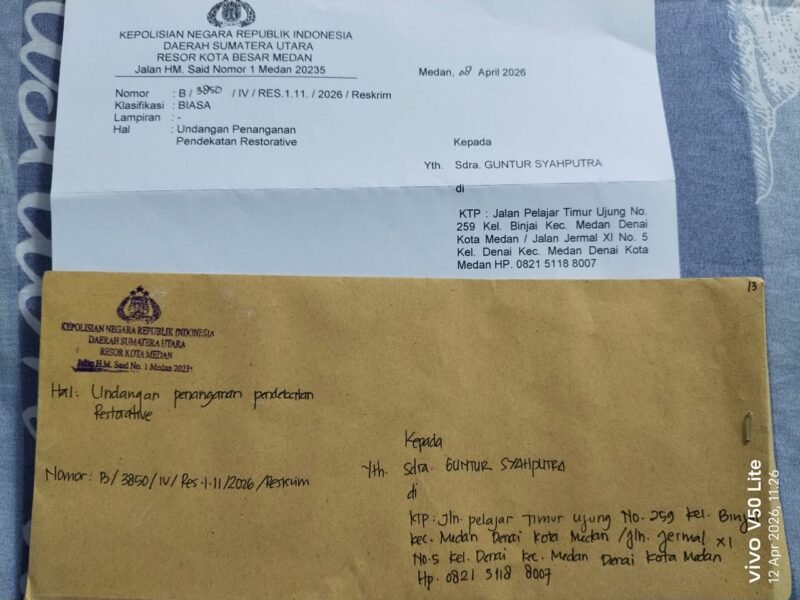 KEPOLISIAN NEGARA REPUBLIK INDONESIA
DAERAH SUMATERA UTARA
RESOR KOTA BESAR MEDAN
Jalan HM. Said Nomor 1 Medan 20235
Medan, 08 April 2026
Nomor : B / 3850 / IV / RES.1.11. / 2026 / Reskrim
Klasifikasi : BIASA
Lampiran : -
Hal : Undangan Penanganan
Pendekatan Restorative
Kepada
Yth. Sdra. GUNTUR SYAHPUTRA
di
KTP : Jalan Pelajar Timur Ujung No.
259 Kel. Binjai Kec. Medan Denai
Kota Medan / Jalan Jermal XI No. 5
Kel. Denai Kec. Medan Denai Kota
Medan HP. 0821 5118 8007
13
KEPOLISIAN NEGARA REPUBLIK INDONESIA
DAERAH SUMATERA UTARA
RESOR KOTA MEDAN
Jalan H.M. Said No. 1 Medan 2023
Hal : Undangan penanganan pendekatan
Restorative
Kepada
Nomor : B/ 3850 / IV / Res.1.11/2026 /Reskrim
Yth. Sdra. GUNTUR SYAHPUTRA
di
KTP : Jln. pelajar Timur Ujung No. 259 Kel. Binj
Kec. Medan Denai Kota Medan /Jln. Jermal XI
No.5 Kel. Denai Kec. Medan Denai Kota Medan
Hp. 0821 5118 8007
vivo V50 Lite
12 Apr 2026, 11:26